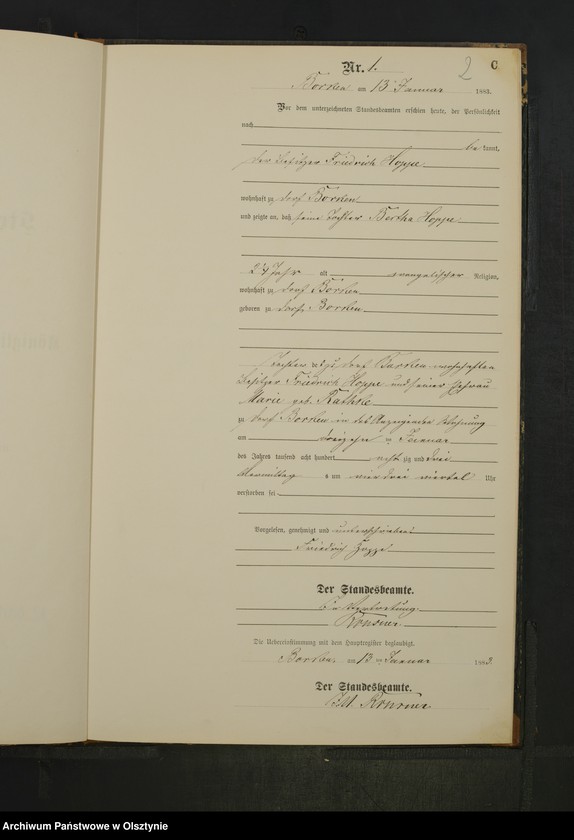 Nr. 1.
2
C
Borken am 13 Januar 1883.
Vor dem unterzeichneten Standesbeamten erschien heute, der Persönlichkeit
nach
be kannt,
der Besitzer Friedrich Hoppe
wohnhaft zu Dorf Borken
und zeigte an, daß seine Tochter Bertha Hoppe
24 Jahr alt evangelischer Religion,
wohnhaft zu Dorf Borken
geboren zu Dorf Borken
Tochter des zu Dorf Borken wohnhaften
Besitzer Friedrich Hoppe und seiner Ehefrau
Marie geb. Rathke
zu Dorf Borken in des Anzeigenden Wohnung
am dreizehn ten Januar
des Jahres tausend acht hundert acht zig und drei
Vormittag s um vier drei viertel Uhr
verstorben sei
Vorgelesen, genehmigt und unterschrieben
Friedrich Hoppe
Der Standesbeamte.
In Vertretung
Die Uebereinstimmung mit dem Hauptregister beglaubigt.
Borken am 13 ten Januar 1883.
Der Standesbeamte.
Archiwum Państwowe w Olsztynie